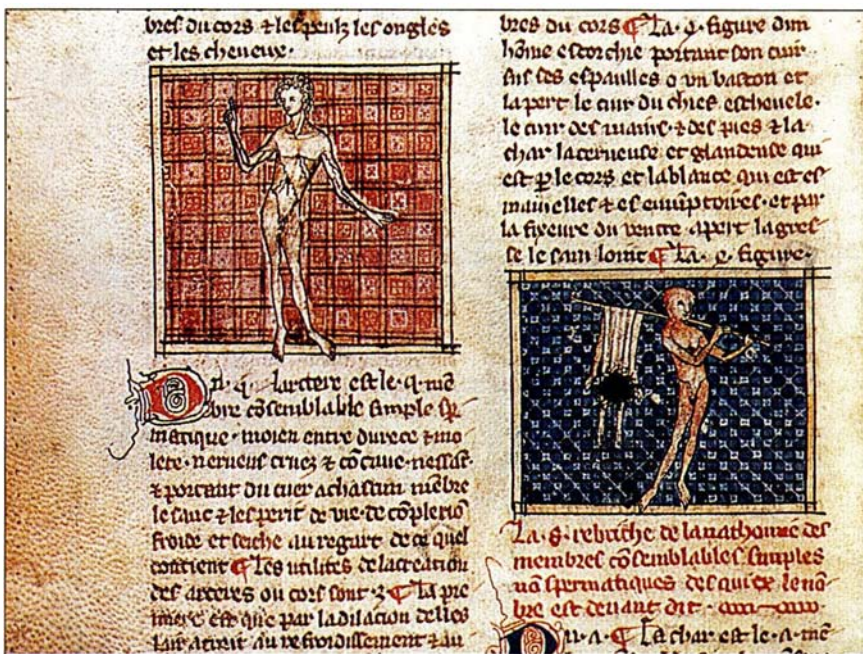 bres du cors ⁊ les peulz les ongles
et les cheueux.
n. q. lartere est le .q. mē
bre cōsemblable simple sp̄
matique. moien entre durece ⁊ mo
lete. nerueus cruez ⁊ cōcaue. nessāt.
⁊ portant du cuer a chascun mēbre
le sanc ⁊ lesperit de vie. de cōplexiō
froide et seiche au regart de ce quel
contient ¶ Les utilites de la creation
des arteres ou cors sont .2. ¶ La pre
miere est que par la dilacion delles
lair attrait au refroidissement ⁊ au
bres du cors ¶ La .q. figure dun
hōme escorchie portant son cuir
sus ses espaulles o vn baston et
la pert le cuir du chief escheuele.
le cuir des mains. ⁊ des pies ⁊ la
char lacerteuse et glandeuse qui
est p̱ le cors et la blance, qui est es
mamelles ⁊ es emūptoires. et par
la fixeure du ventre apert la gres
se le sain loint ¶ La .q. figure.
La .8. rebriche de la nathomie des
membres cōsemblables simples
nō spermatiques desquiex le nō-
bre est deuant dit.
n. a. ¶ La char est le .a. mē